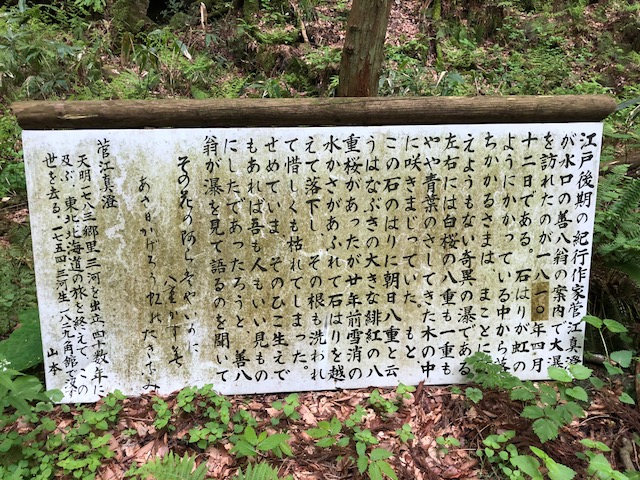 江戸後期の紀行作家菅江真澄
が水口の善八翁の案内で大瀑
を訪れたのが一八一〇年四月
十二日である。石はりが虹の
ようにかかっている中から落
ちかかるさまは、まことに
えようもない奇異の瀑である
左右には白桜の八重も一重も
やや青葉のさしてきた木の中
に咲きまじっていた。もと
この石のはりに朝日八重と云
うはなぶさの大きな緋紅の八
重桜があったが廿年前雪消の
水かさがあふれて石はりを越
えて落下し、その根も洗われ
て惜しくも枯れてしまった。
せめていま、そのひこ生えで
もあれば吾も人もいい見もの
にしたであったろうと、善八
翁が瀑を見て語るのを聞いて
その花の
八重
あさ日かげろ
菅江真澄
天明一七八三郷里三河を出立四十数年に
及ぶ東北北海道の旅を終えて、この
世を去る。一七五四三河生一八二九角館で没
山本